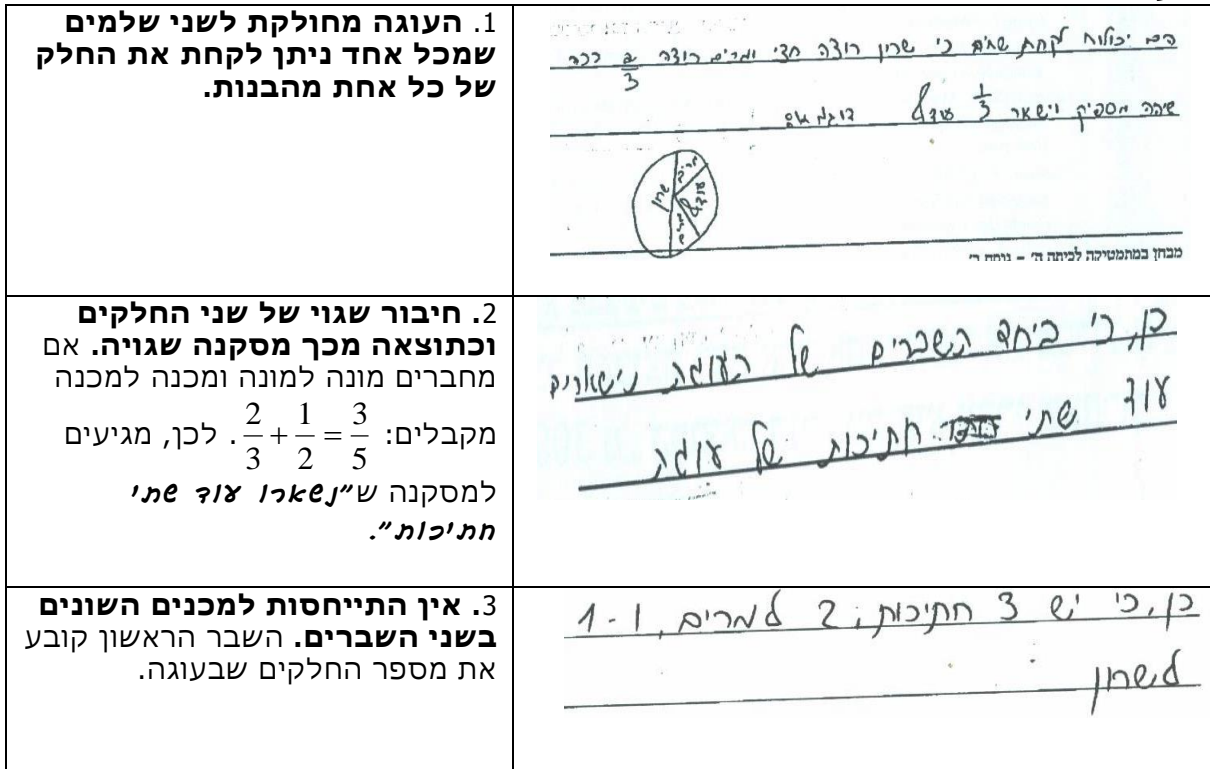 1. העוגה מחולקת לשני שלמים
שמכל אחד ניתן לקחת את החלק
של כל אחת מהבנות.
הם יכולות לקחת שתים כי שרון רוצה חצי ומרים רוצה 2/3 ככה
שיהה מספיק וישאר 1/3 עודף דוגמא
שרון
מרים
עודף
מרים
מבחן במתמטיקה לכיתה ה' – נוסח ב'
2. חיבור שגוי של שני החלקים
וכתוצאה מכך מסקנה שגויה. אם
מחברים מונה למונה ומכנה למכנה
מקבלים: 2/3 + 1/2 = 3/5. לכן, מגיעים
למסקנה ש"נשארו עוד שתי
חתיכות".
כן, כי ביחד השברים של העוגה נישארים
עוד שתי חתיכות של עוגה
3. אין התייחסות למכנים השונים
בשני השברים. השבר הראשון קובע
את מספר החלקים שבעוגה.
כן, כי יש 3 חתיכות; 2 למרים, ו-1
לשרון